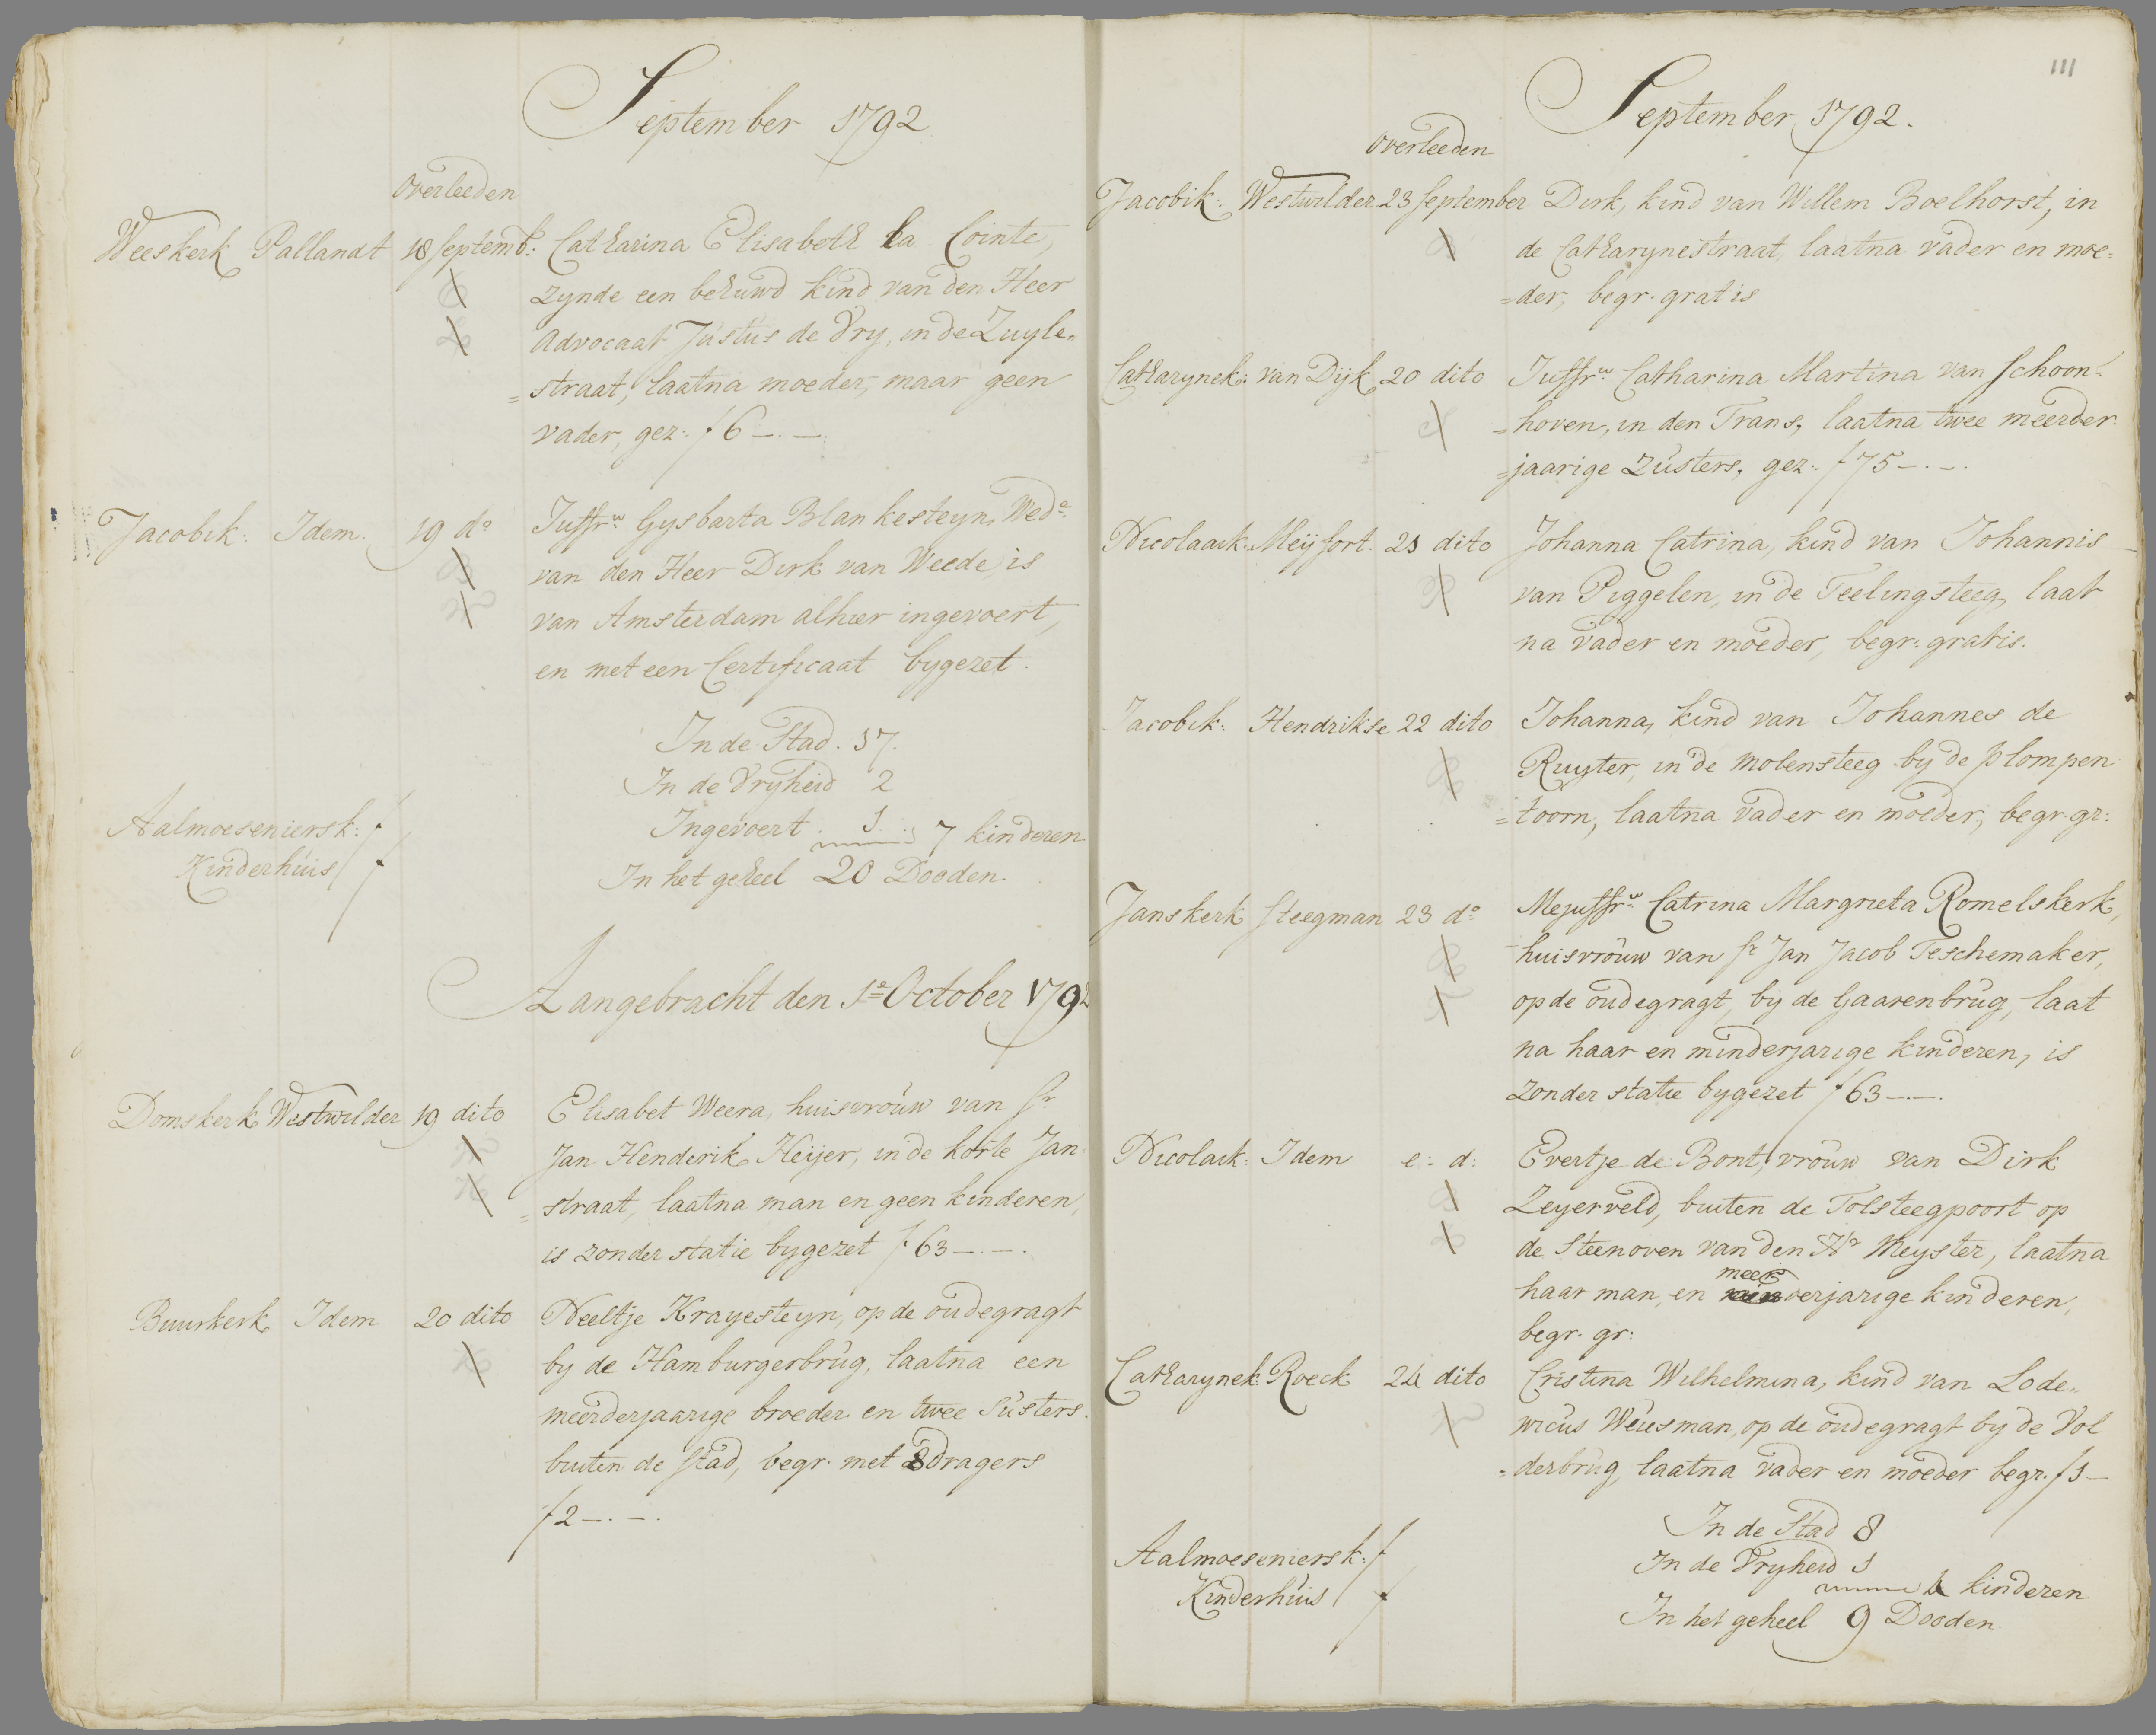 September 1792
Overleeden
Weeskerk Pallandt 18 Septemb: Catharina Elisabeth La Cointe,
zynde een behuwd kind van den Heer
Advocaat Justus de Vry, in de Zuyle„
=straat, laatna moeder, maar geen
vader, gez: f 6 —.—.
Jacobik: Idem. 19 do Juffrw Gysbarta Blankesteyn, Wede
van den Heer Dirk van Weede, is
van Amsterdam alhier ingevoert,
en met een Certificaat bygezet.
In de Stad. 17.
In de Vryheid 2
Ingevoert. 1. 7 kinderen
In het geheel 20 Dooden.
Aalmoeseniersk: f
Kinderhuis f
Aangebracht den 1e October 1792
Domskerk Westwilder 19 dito Elisabet Weera, huisvrouw van Sr
Jan Henderik Heijer, in de korte Jan
=straat, laatna man en geen kinderen,
is zonder statie bygezet f 63 —.—.
Buurkerk Idem 20 dito Neeltje Krayesteyn, op de oudegragt
by de Hamburgerbrug, laatna een
meerderjaarige broeder en twee Susters
buiten de Stad, begr. met 8 dragers
f 2 —.—.
111
September 1792.
Overleeden
Jacobik: Westwilder 23 September Dirk, kind van Willem Boelhorst, in
de Catharynestraat, laatna vader en moe=
=der, begr. gratis
Catharynek: van Dijk 20 dito Juffrw Catharina Martina van Schoon=
=hoven, in den Trans, laatna twee meerder
=jaarige Zusters, gez: f 75 —.—.
Nicolaaik: Meijfort. 21 dito Johanna Catrina, kind van Johannis
van Piggelen, in de Teelingsteeg, laat
na vader en moeder, begr: gratis.
Jacobik: Hendrikse 22 dito Johanna, kind van Johannes de
Ruyter, in de molensteeg by de plompen
=toorn, laatna vader en moeder, begr. gr:
Janskerk Steegman 23 do Mejuffrw Catrina Margrieta Romelskerk,
huisvrouw van Sr Jan Jacob Teschemaker,
op de oudegragt, bij de Gaarenbrug, laat
na haar en minderjarige kinderen, is
zonder statie bygezet f 63 —.—.
Nicolaik: Idem e: d: Evertje de Bont, vrouw van Dirk
Zeyerveld, buiten de Tolsteegpoort op
de Steenoven van den Hr Meyster, laatna
haar man, en meerderjarige kinderen,
begr. gr:
Catharynek: Roeck 24 dito Cristina Wilhelmina, kind van Lode„
wicus Weusman, op de oudegragt by de Vol
=derbrug, laatna vader en moeder begr. f 1 —
In de Stad 8
In de Vryheid 1
4 kinderen
In het geheel 9 Dooden
Aalmoeseniersk: f
Kinderhuis f